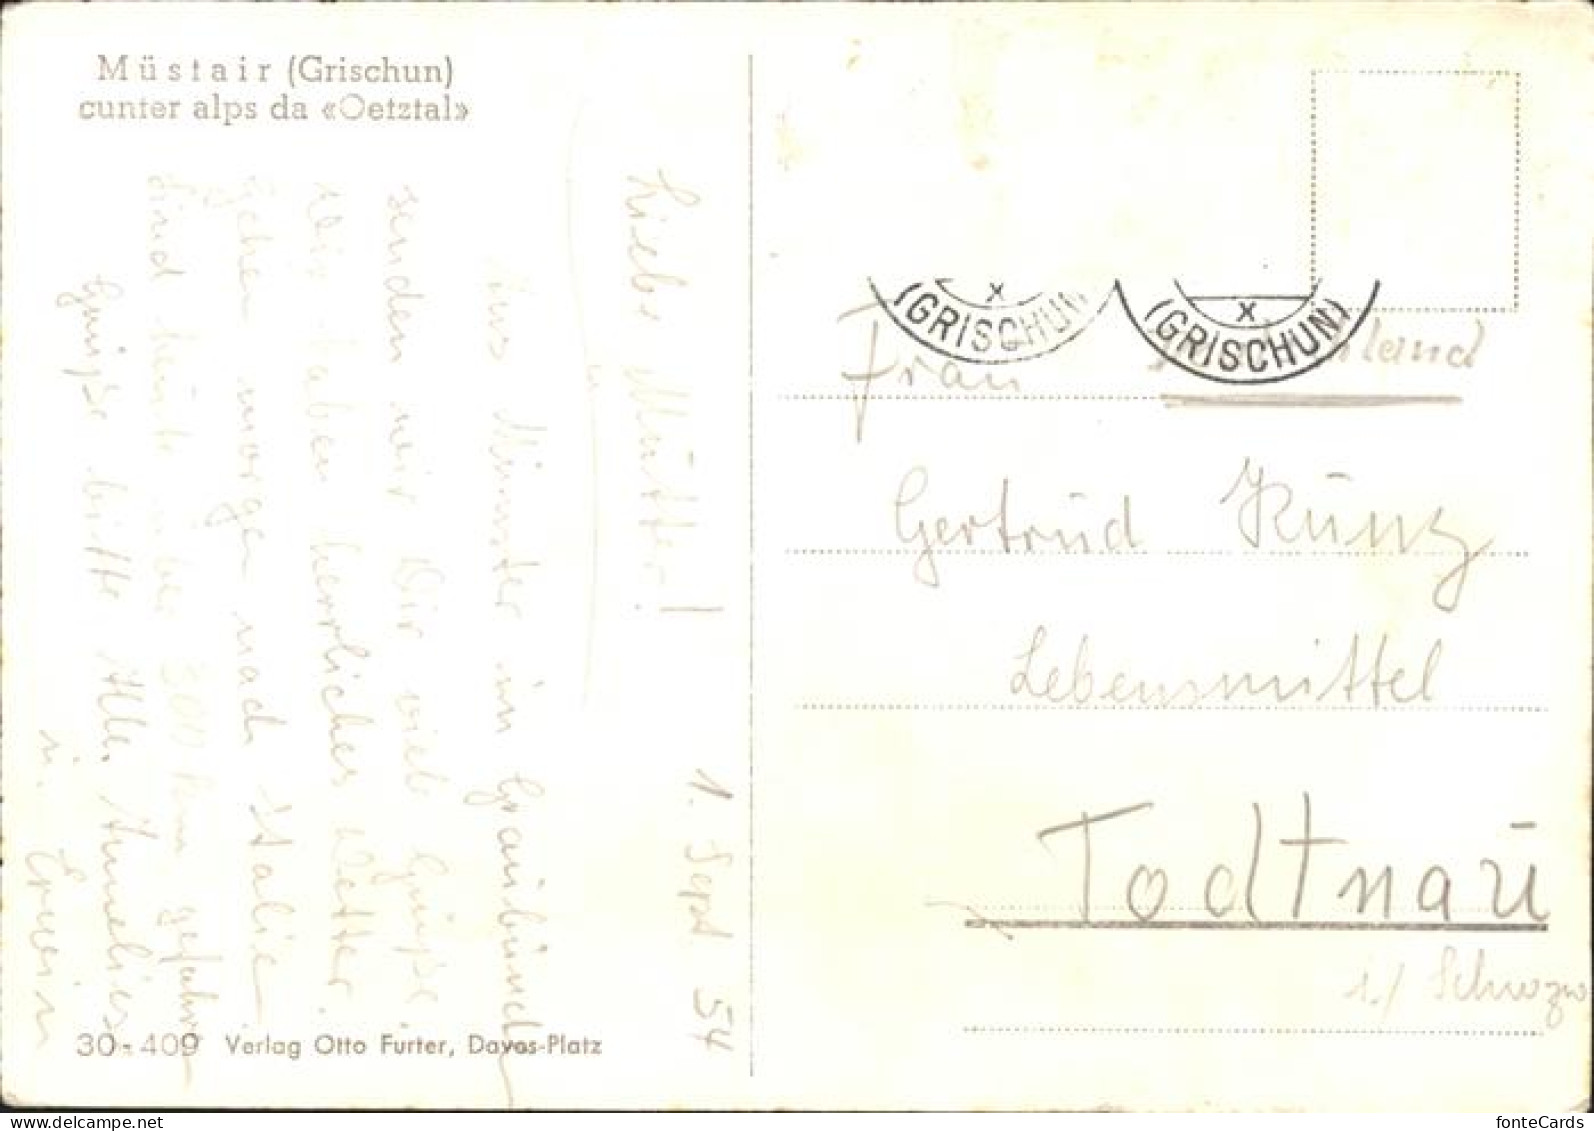 Müstair (Grischun)
cunter alps da «Oetztal»
1. Sept. 54
Liebe Mutter!
Aus Münster in Graubünden
senden wir Dir viele Grüsse.
Wir haben herrliches Wetter.
Gehen morgen nach Italien
Sind heute über 300 km gefahren
Grüsse bitte Alle. Annelies
u. Erwin
30-409 Verlag Otto Furter, Davos-Platz
x
(GRISCHUN)
x
(GRISCHUN)
land
Frau
Gertrud Kunz
Lebensmittel
Todtnau
i./ Schwzw
fonteCards